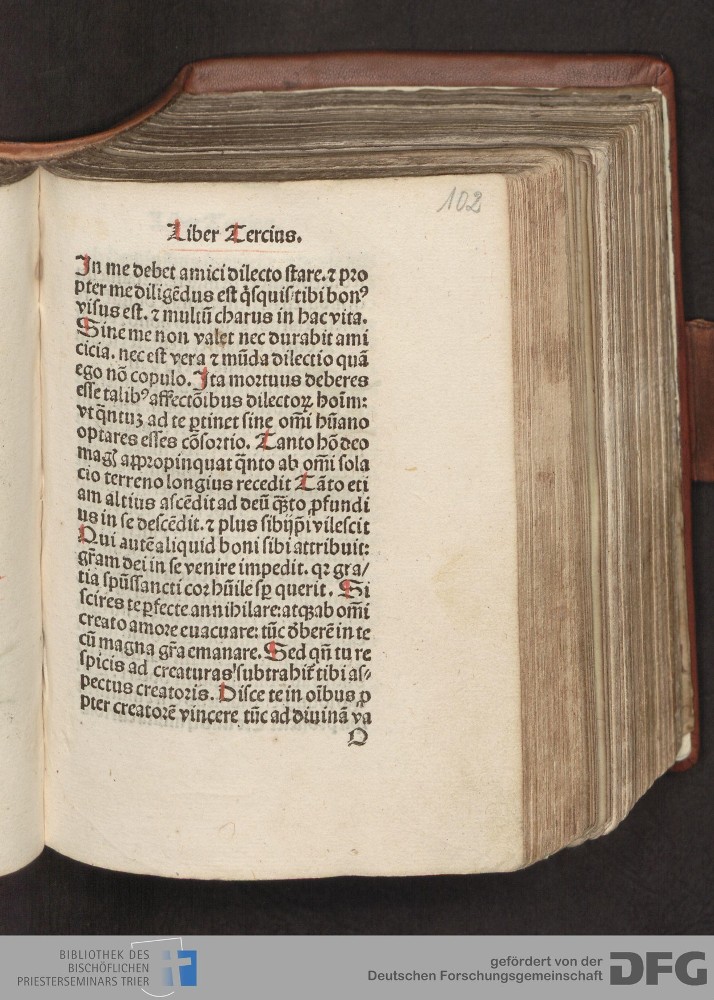 102
Liber Tercius.
In me debet amici dilecto stare. ⁊ pro
pter me diligēdus est q̇squis tibi bonꝰ
visus est. ⁊ multū charus in hac vita.
Sine me non valet nec durabit ami
cicia. nec est vera ⁊ mūda dilectio quā
ego nō copulo. Ita mortuus deberes
esse talibꝰ affectōibus dilectoꝝ hoīm:
vt q̄ntuꝫ ad te ꝑtinet sine om̄i hūano
optares esses cōsortio. Tanto hō deo
magꝭ appropinquat q̄nto ab om̄i sola
cio terreno longius recedit Tāto eti
am altius ascēdit ad deū q̄ꝫto ꝓfundi
us in se descēdit. ⁊ plus sibijp̄i vilescit
Qui autē aliquid boni sibi attribuit:
gr̄am dei in se venire impedit. qꝛ gra/
tia spūssancti cor hūile sꝑ querit. Si
scires te ꝑfecte annihilare: atqꝫ ab om̄i
creato amore euacuare: tūc ꝺberē in te
cū magna gr̄a emanare. Sed qn̄ tu re
spicis ad creaturas subtrahit̄ tibi as⸗
pectus creatoris. Disce te in oībus ꝓ
pter creatorē vincere tūc ad diuinā va
O
BIBLIOTHEK DES
BISCHÖFLICHEN
PRIESTERSEMINARS TRIER
gefördert von der
Deutschen Forschungsgemeinschaft
DFG